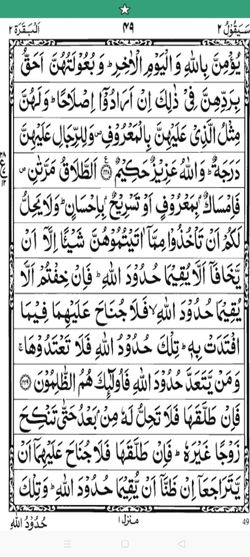 سَیَقُوْلُ ٢ ٤٩ اَلْبَقَرَة ٢
یُؤْمِنَّ بِاللّٰهِ وَالْیَوْمِ الْاٰخِرِ ؕ وَبُعُوْلَتُهُنَّ اَحَقُّ
بِرَدِّهِنَّ فِیْ ذٰلِكَ اِنْ اَرَادُوْۤا اِصْلَاحًا ؕ وَلَهُنَّ
مِثْلُ الَّذِیْ عَلَیْهِنَّ بِالْمَعْرُوْفِ ۪ وَلِلرِّجَالِ عَلَیْهِنَّ
دَرَجَةٌ ؕ وَاللّٰهُ عَزِیْزٌ حَكِیْمٌ ﴿٢٢٨﴾ اَلطَّلَاقُ مَرَّتٰنِ ۪
فَاِمْسَاكٌۢ بِمَعْرُوْفٍ اَوْ تَسْرِیْحٌۢ بِاِحْسَانٍ ؕ وَلَا یَحِلُّ
لَكُمْ اَنْ تَاْخُذُوْا مِمَّاۤ اٰتَیْتُمُوْهُنَّ شَیْـًٔا اِلَّاۤ اَنْ
یَّخَافَاۤ اَلَّا یُقِیْمَا حُدُوْدَ اللّٰهِ ؕ فَاِنْ خِفْتُمْ اَلَّا
یُقِیْمَا حُدُوْدَ اللّٰهِ ۙ فَلَا جُنَاحَ عَلَیْهِمَا فِیْمَا
افْتَدَتْ بِهٖ ؕ تِلْكَ حُدُوْدُ اللّٰهِ فَلَا تَعْتَدُوْهَا ۚ
وَمَنْ یَّتَعَدَّ حُدُوْدَ اللّٰهِ فَاُولٰٓئِكَ هُمُ الظّٰلِمُوْنَ ﴿٢٢٩﴾
فَاِنْ طَلَّقَهَا فَلَا تَحِلُّ لَهٗ مِنْۢ بَعْدُ حَتّٰی تَنْكِحَ
زَوْجًا غَیْرَهٗ ؕ فَاِنْ طَلَّقَهَا فَلَا جُنَاحَ عَلَیْهِمَاۤ اَنْ
یَّتَرَاجَعَاۤ اِنْ ظَنَّاۤ اَنْ یُّقِیْمَا حُدُوْدَ اللّٰهِ ؕ وَتِلْكَ
حُدُوْدُ اللّٰهِ منزل ١ 49